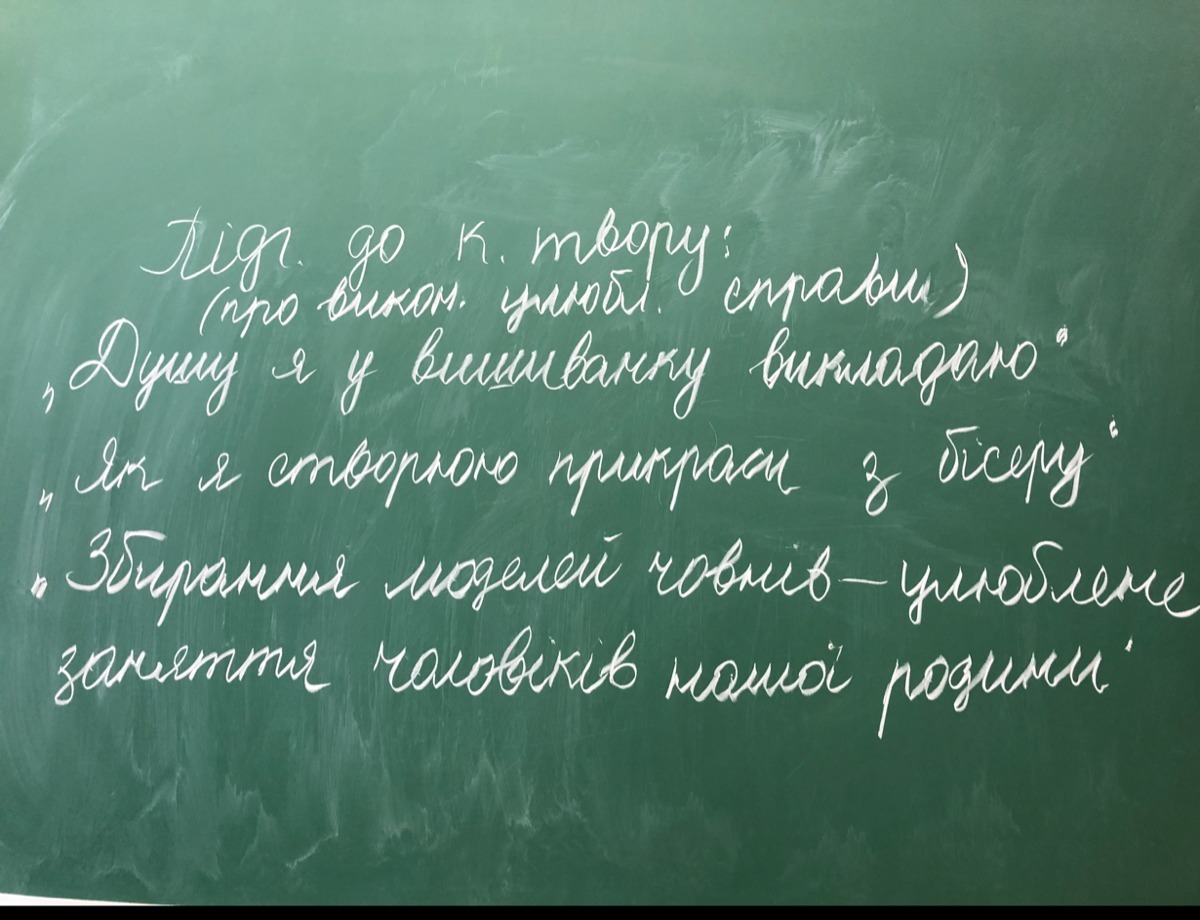 Підг. до к. твору:
(про викон. улюбл. справи)
„Душу я у вишиванку викладаю"
„Як я створюю прикраси з бісеру"
„Збирання моделей човнів – улюблене
заняття чоловіків нашої родини"